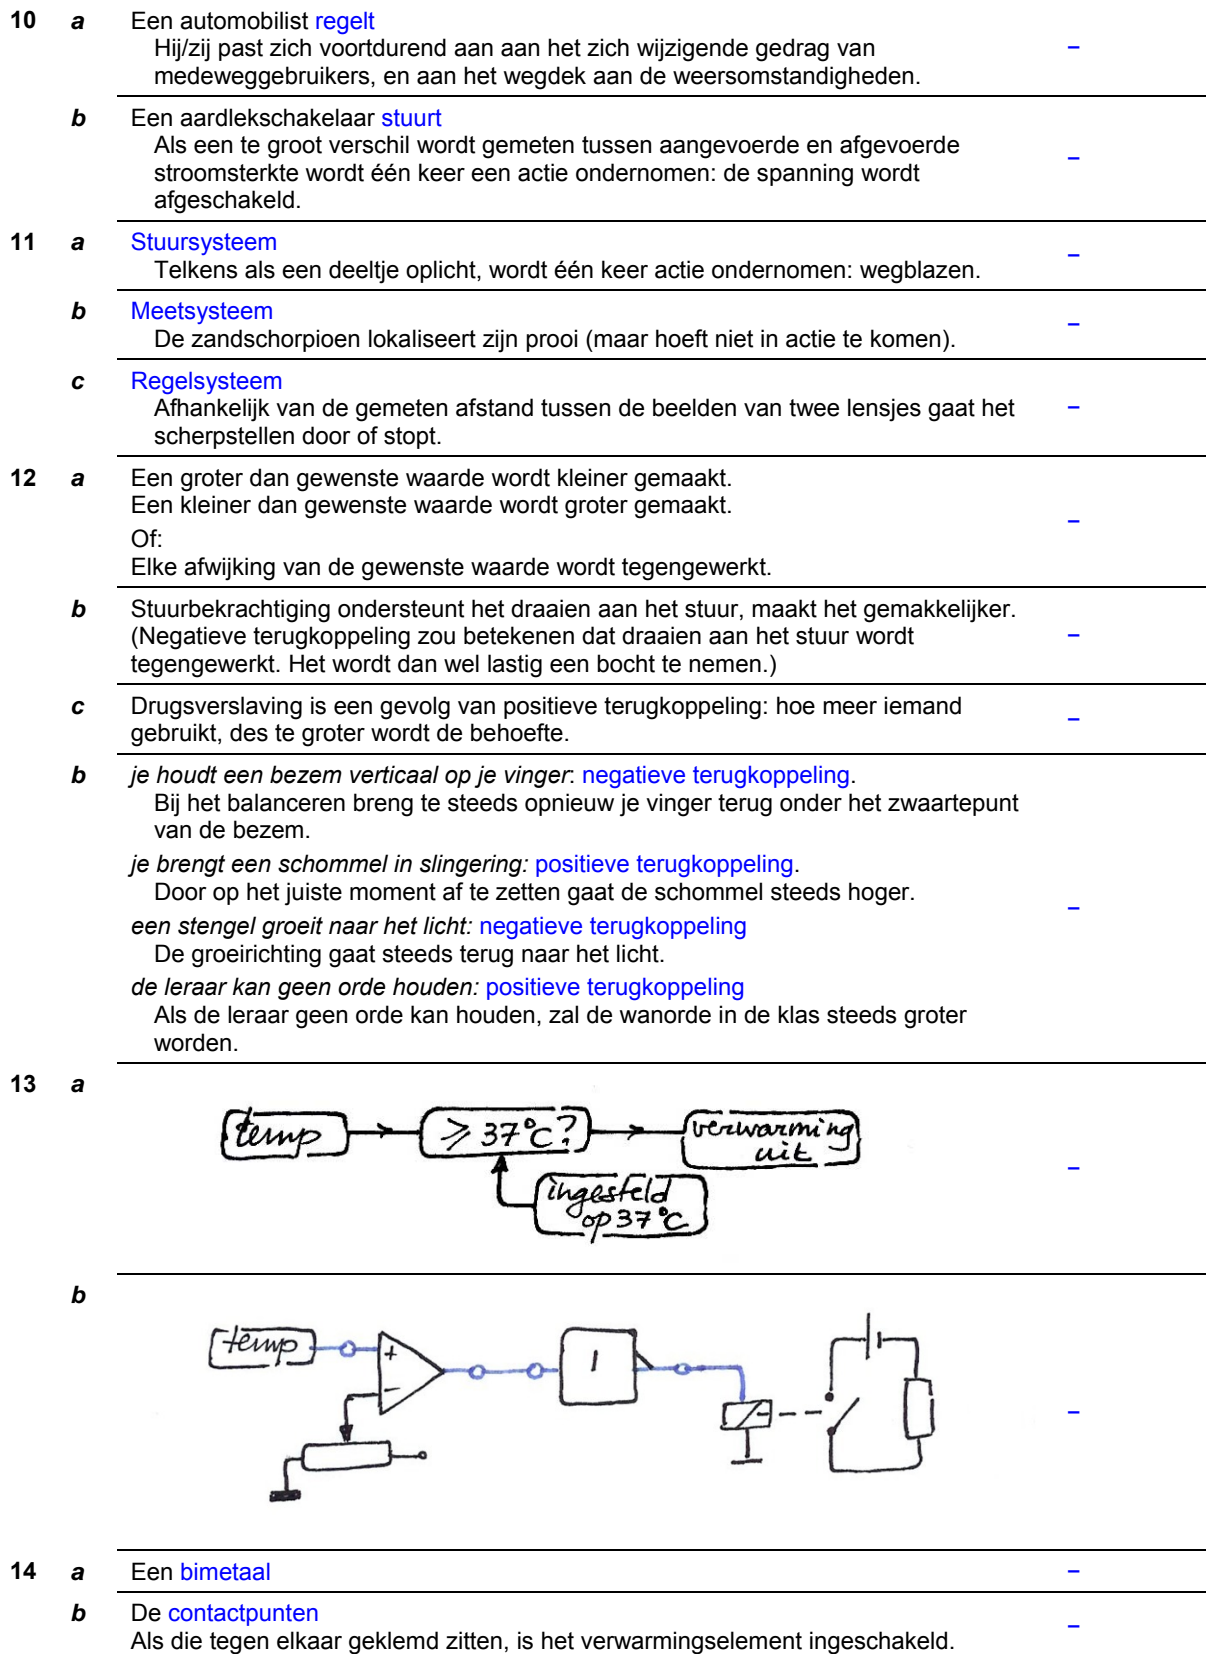 10 a Een automobilist regelt
Hij/zij past zich voortdurend aan aan het zich wijzigende gedrag van
medeweggebruikers, en aan het wegdek aan de weersomstandigheden.
–
b Een aardlekschakelaar stuurt
Als een te groot verschil wordt gemeten tussen aangevoerde en afgevoerde
stroomsterkte wordt één keer een actie ondernomen: de spanning wordt
afgeschakeld.
–
11 a Stuursysteem
Telkens als een deeltje oplicht, wordt één keer actie ondernomen: wegblazen.
–
b Meetsysteem
De zandschorpioen lokaliseert zijn prooi (maar hoeft niet in actie te komen).
–
c Regelsysteem
Afhankelijk van de gemeten afstand tussen de beelden van twee lensjes gaat het
scherpstellen door of stopt.
–
12 a Een groter dan gewenste waarde wordt kleiner gemaakt.
Een kleiner dan gewenste waarde wordt groter gemaakt.
Of:
Elke afwijking van de gewenste waarde wordt tegengewerkt.
–
b Stuurbekrachtiging ondersteunt het draaien aan het stuur, maakt het gemakkelijker.
(Negatieve terugkoppeling zou betekenen dat draaien aan het stuur wordt
tegengewerkt. Het wordt dan wel lastig een bocht te nemen.)
–
c Drugsverslaving is een gevolg van positieve terugkoppeling: hoe meer iemand
gebruikt, des te groter wordt de behoefte.
–
b je houdt een bezem verticaal op je vinger: negatieve terugkoppeling.
Bij het balanceren breng te steeds opnieuw je vinger terug onder het zwaartepunt
van de bezem.
je brengt een schommel in slingering: positieve terugkoppeling.
Door op het juiste moment af te zetten gaat de schommel steeds hoger.
een stengel groeit naar het licht: negatieve terugkoppeling
De groeirichting gaat steeds terug naar het licht.
de leraar kan geen orde houden: positieve terugkoppeling
Als de leraar geen orde kan houden, zal de wanorde in de klas steeds groter
worden.
–
13 a
temp ⩾ 37°C? verwarming
uit
ingesteld
op 37°C
–
b
temp + 1
−
–
14 a Een bimetaal –
b De contactpunten
Als die tegen elkaar geklemd zitten, is het verwarmingselement ingeschakeld.
–